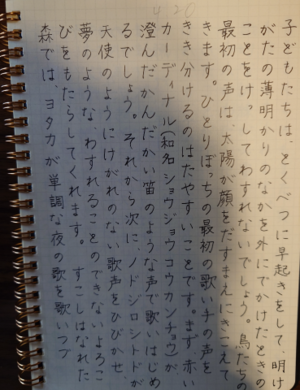 子どもたちは、とくべつに早起きをして 明け
がたの薄明かりのなかを外にでかけたときの
ことをけっしてわすれないでしょう。鳥たちの
最初の声は、太陽が顔をだすまえにきこえて
きます。ひとりぼっちの最初の歌い手の声を
きき分けるのはたやすいことです。まず赤い
カーディナル(和名ショウジョウコウカンチョウ)が
澄んだかんだかい笛のような声で歌いはじめ
るでしょう。それから次に、ノドジロシトドが
天使のようにけがれのない歌声をひびかせ
夢のような、わすれることのできないよろこ
びをもたらしてくれます。 すこしはなれた
森では、ヨタカが単調な夜の歌を歌いつづ